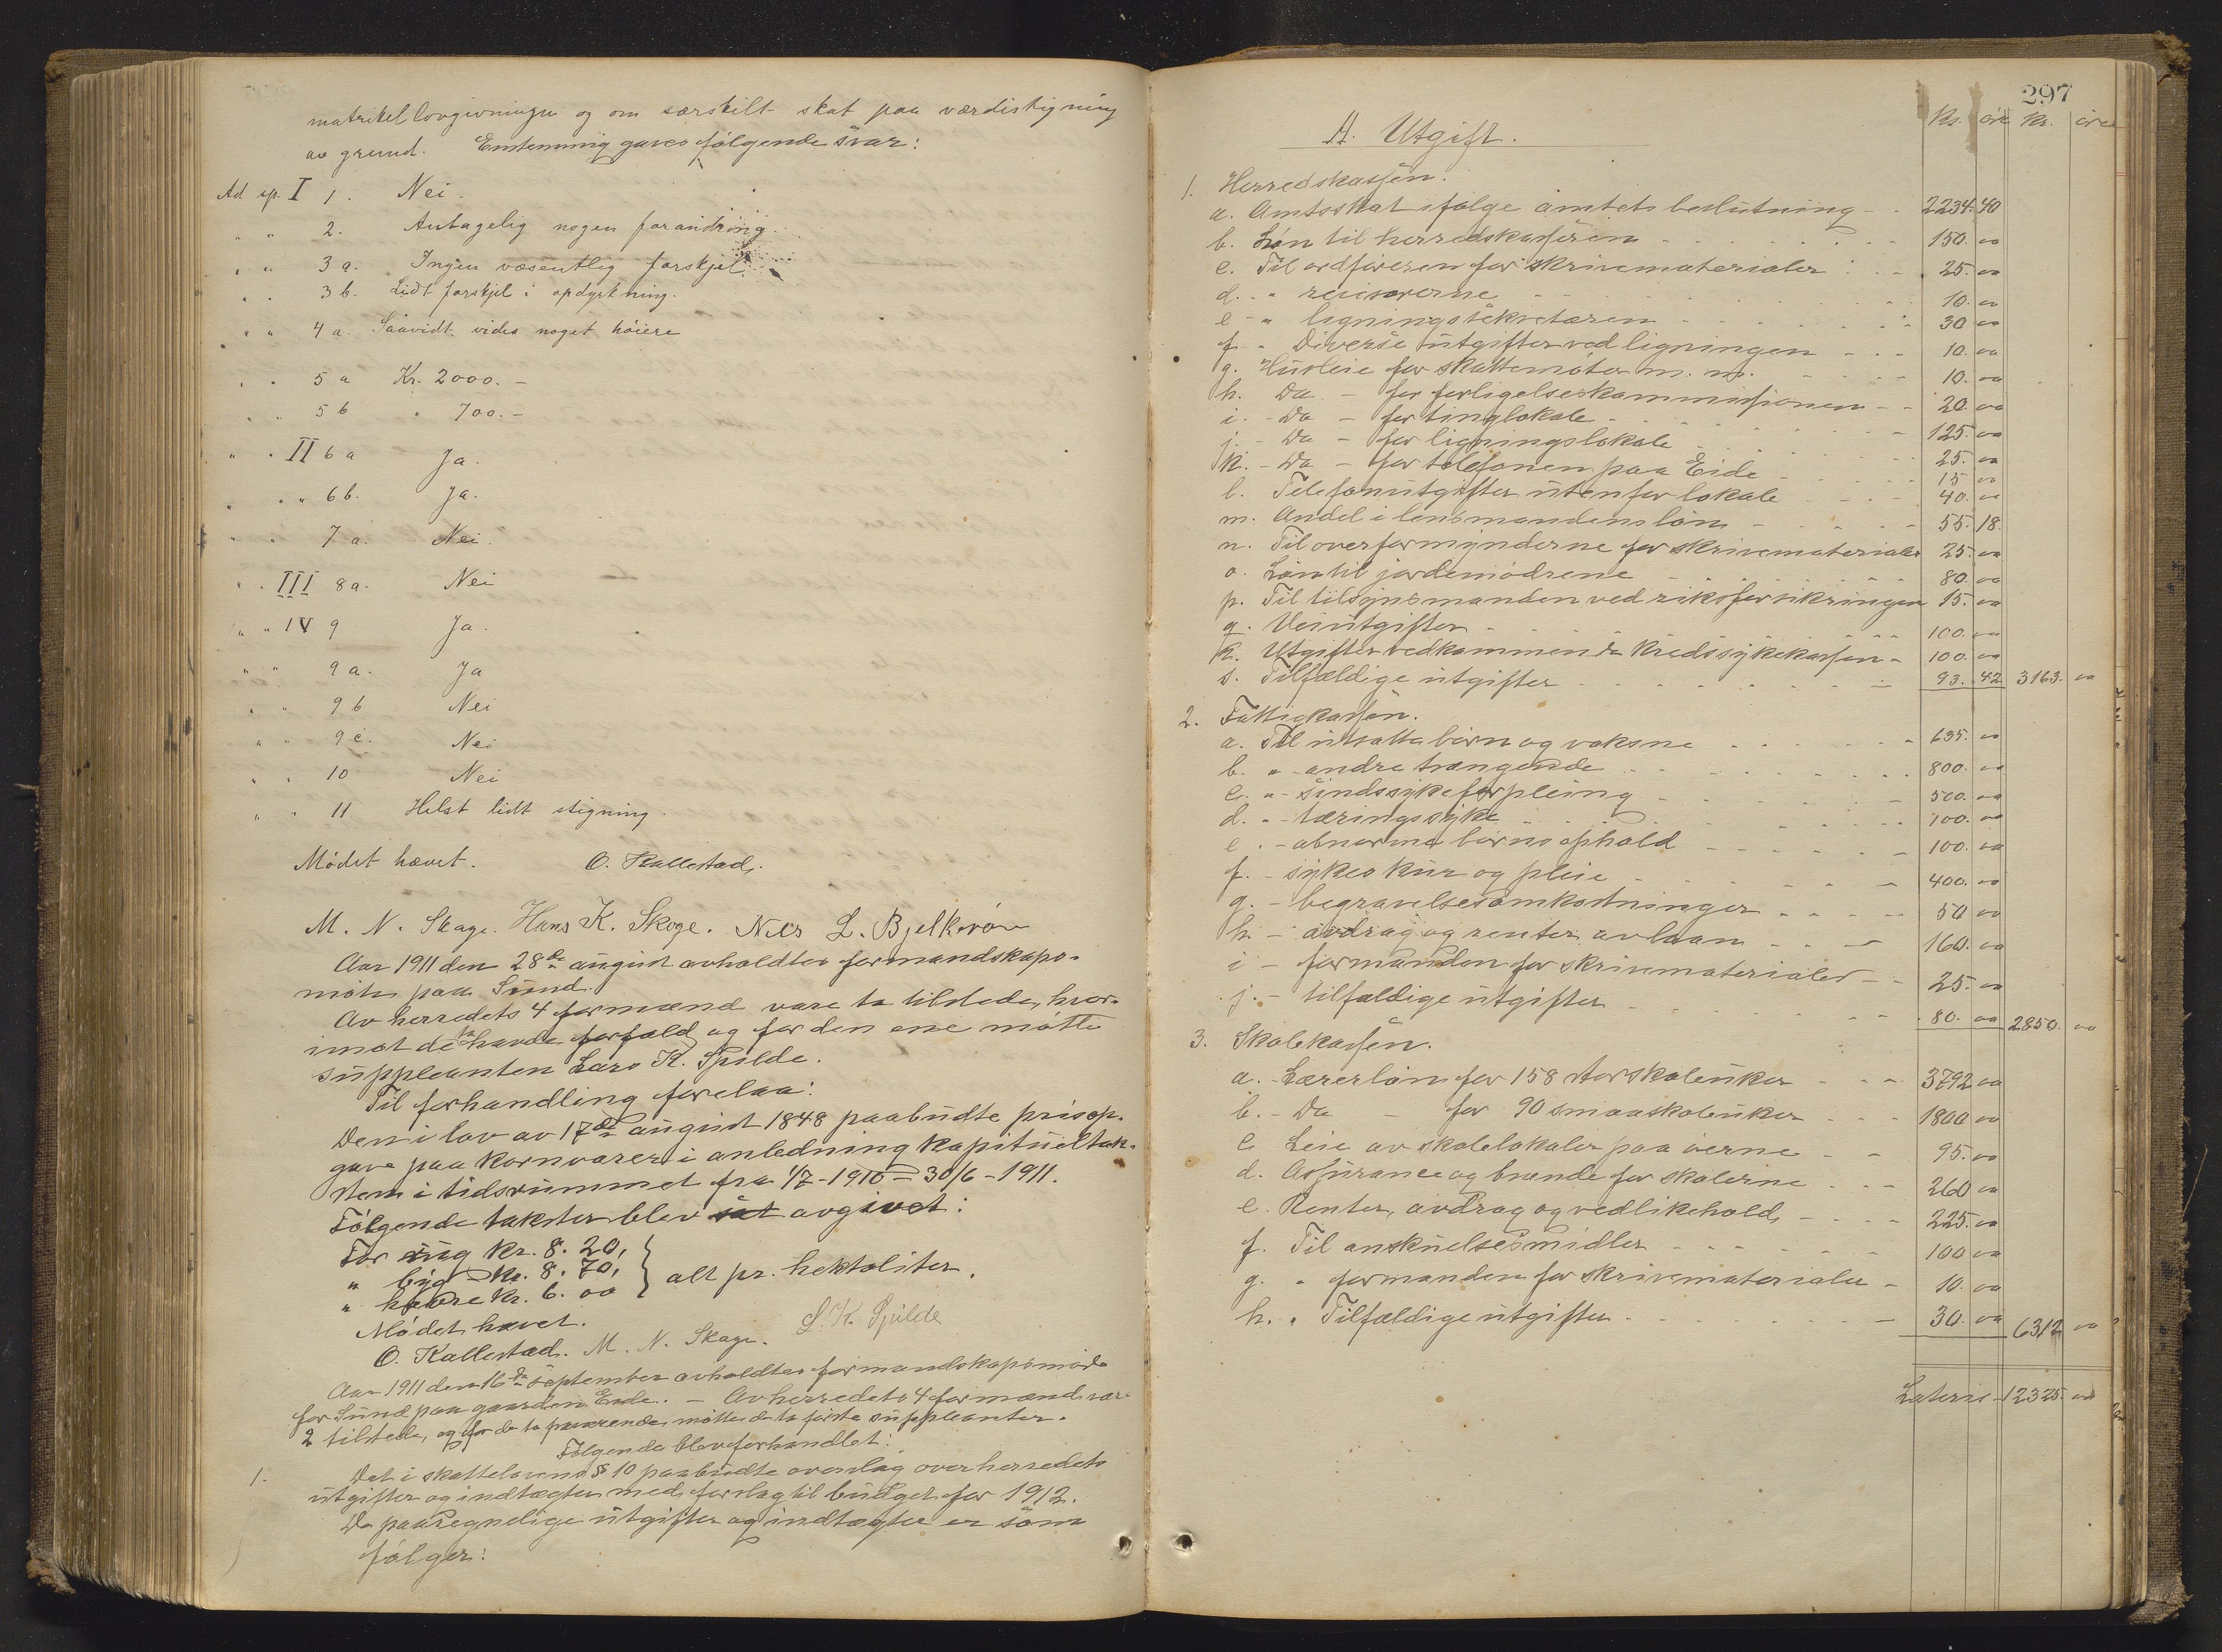 matrikellovgivningen og om særskilt skat paa værdistigning
av grund. Enstemmig gaves følgende svar:
Ad sp. I 1. Nei.
" " 2. Antagelig nogen forandring.
" " 3 a. Ingen væsentlig forskjel.
" " 3 b. Lidt forskjel i opdyrkning.
" " 4 a. Saavidt vides noget høiere
" " 5 a Kr. 2000.-
" " 5 b " 700.-
" " II 6 a Ja.
" " 6 b. Ja.
" " 7 a. Nei.
" " III 8 a. Nei
" " IV 9 Ja.
" " 9 a. Ja
" " 9 b Nei
" " 9 c. Nei
" " 10 Nei
" " 11 Helst lidt stigning.
Mødet hævet. O. Kallestad.
M. N. Skage. Hans K. Skoge. Nils L. Bjelkerøen
Aar 1911 den 28de august avholdtes formandskaps-
møte paa Sund.
Av herredets 4 formænd vare to tilstede, hvor-
imot de to havde forfald og for den ene møtte
suppleanten Lars K. Spilde.
Til forhandling forelaa:
Den i lov av 17de august 1848 paabudte prisop-
gave paa kornvarer i anledning kapitueltak-
sten i tidsrummet fra 1/7-1910 - 30/6-1911.
Følgende takster blev sat avgivet:
For rug kr. 8.20,
" byg - kr. 8.70, } alt pr. hektoliter.
" havre kr. 6.00
Mødet hævet.
O. Kallestad. M. N. Skage. L. K. Spilde
Aar 1911 den 16de september avholdtes formandskapsmøde
for Sund paa gaarden Eide. - Av herredets 4 formænd var
2 tilstede, og for de to fraværende møtte de to første suppleanter.
Følgende blev forhandlet:
1. Det i skattelovens § 10 paabudte overslag over herredets
utgifter og indtægter med forslag til budget for 1912.
De paaregnelige utgifter og indtægter er som
følger:
297
A. Utgift.
Kr. øre Kr. øre
1. Herredskassen.
a. Amtsskat ifølge amtets beslutning - - 2234. 40
b. Løn til herredskassereren - - 150. 00
c. Til ordføreren for skrivematerialer - - 25. 00
d. - " revisorerne - - 10. 00
e - " ligningssekretæren - - 30 00
f - " Diverse utgifter ved ligningen - - 10. 00
g. Husleie for skattemøter m. m. - - 10. 00
h. Do - for forligelseskommissionen - - 20. 00
i. - Do - for tinglokale - - 125. 00
j. - Do - for ligningslokale - - 25. 00
k. - Do - for telefonen paa Eide - - 15 00
l. Telefonutgifter utenfor lokale - - 40. 00
m. Andel i lensmandens løn - - 55. 18.
n. Til overformynderne for skrivematerialer 25. 00
o. Løn til jordemødrene - - 80. 00
p. Til tilsynsmanden ved riksforsikringen 15. 00
q. Veiutgifter - - 100. 00
r. Utgifter vedkommende kredssykekassen - 100. 00
s. Tilfældige utgifter - - 93. 42 3163. 00
2. Fattigkassen.
a. Til utsatte børn og voksne - - 635. 00
b. " - andre trængende - - 800. 00
c. " - sindssykeforpleing - - 500. 00
d. " - tæringssyke - - 100. 00
e. - abnorme børns ophold - - 100. 00
f. - sykes kur og pleie - - 400. 00
g. - begravelsesomkostninger - - 50 00
h. - avdrag og renter av laan - - 160. 00
i - formanden for skrivematerialer - - 25. 00
j. - tilfældige utgifter - - 80. 00 2850. 00
3. Skolekassen.
a. - Lærerløn for 158 storskoleuker - - 3792 00
b. - Do - for 90 smaaskoleuker - - 1800 00
c Leie av skolelokaler paa øerne - - 95. 00
d. Assurance og brænde for skolerne - - 260 00
e. Renter, avdrag og vedlikehold, - - 225. 00
f. Til anskuelsesmidler - - 100 00
g. " formanden for skrivematerialer - 10. 00
h. " Tilfældige utgifter - - 30. 00 6312 00
Lateris - 12325. 00